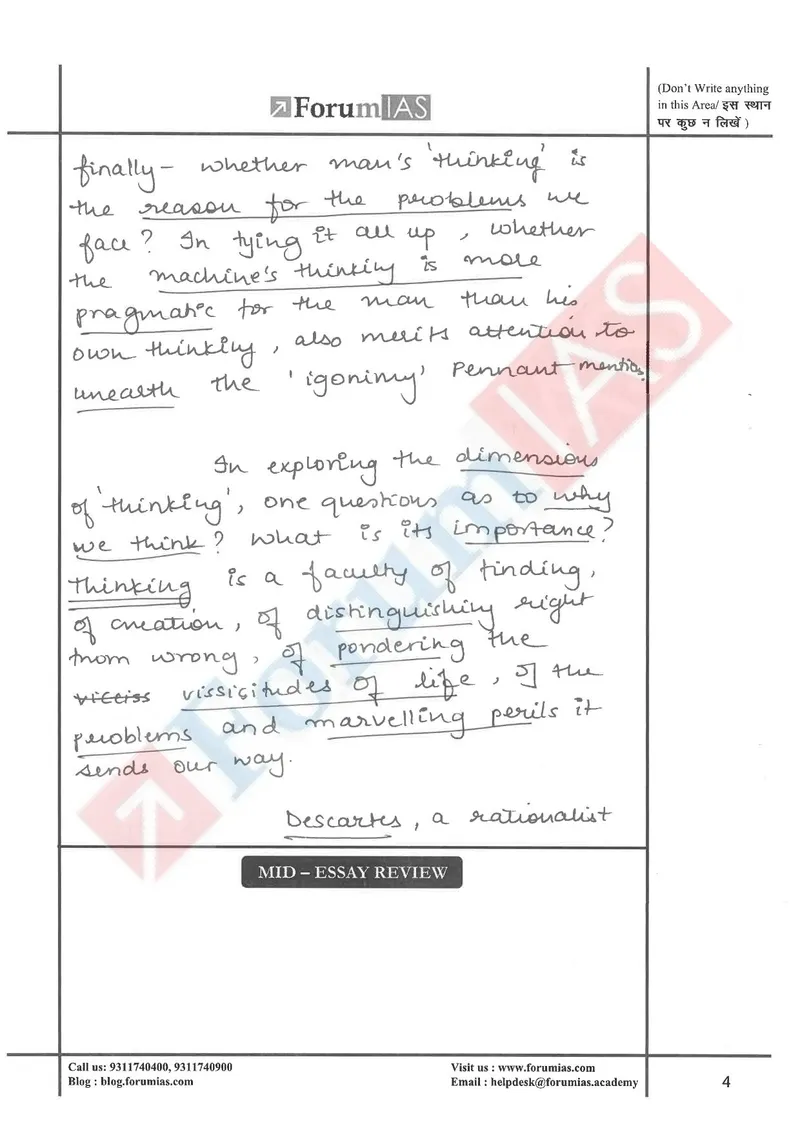 ForumIAS
(Don't Write anything
in this Area/ इस स्थान
पर कुछ न लिखें )
finally - whether man's 'thinking' is
the reason for the problems we
face? In tying it all up, whether
the machine's thinking is more
pragmatic for the man than his
own thinking, also merits attention to
unearth the 'igonimy' Pennant mentions.
In exploring the dimensions
of 'thinking', one questions as to why
we think? What is its importance?
Thinking is a faculty of finding,
of creation, of distinguishing right
from wrong, of pondering the
viceiss vissicitudes of life, of the
problems and marvelling perils it
sends our way.
Descartes, a rationalist
ForumIAS
MID – ESSAY REVIEW
Call us: 9311740400, 9311740900
Blog : blog.forumias.com
Visit us : www.forumias.com
Email : helpdesk@forumias.academy
4